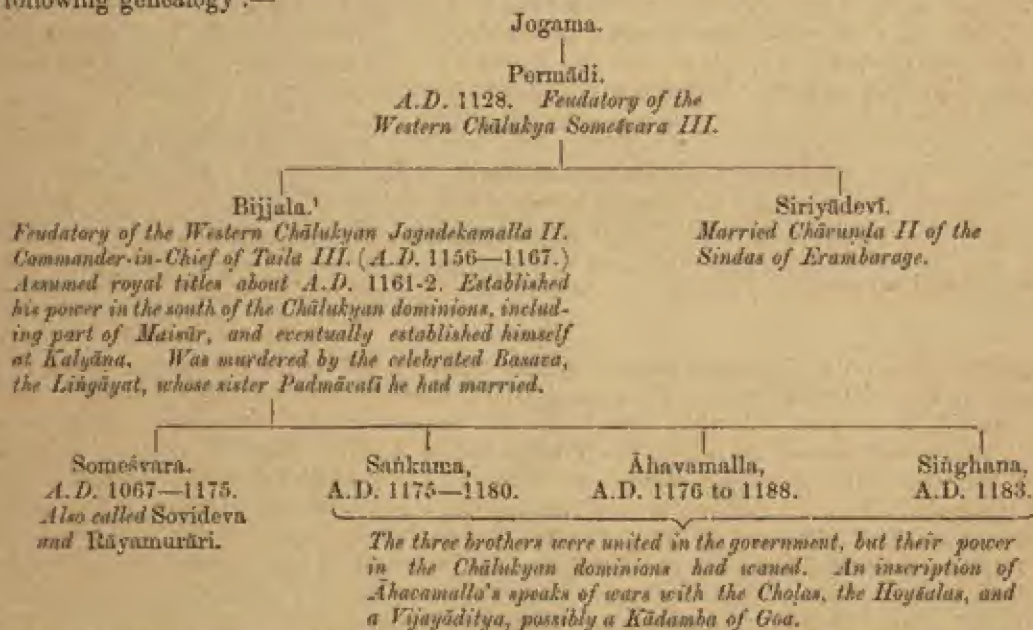 following genealogy :—
Jogama.
Permādi.
A.D. 1128. Feudatory of the
Western Chālukya Someśvara III.
Bijjala.¹
Feudatory of the Western Chālukyan Jagadekamalla II.
Commander-in-Chief of Taila III. (A.D. 1156—1167.)
Assumed royal titles about A.D. 1161-2. Established
his power in the south of the Chālukyan dominions, includ-
ing part of Maisūr, and eventually established himself
at Kalyāna. Was murdered by the celebrated Basava,
the Liṅgāyat, whose sister Padmāvatī he had married.
Siriyādevī.
Married Chāvuṇḍa II of the
Sindas of Erambarage.
Someśvara.
A.D. 1067—1175.
Also called Sovideva
and Rāyamurāri.
Saṅkama,
A.D. 1175—1180.
Āhavamalla,
A.D. 1176 to 1188.
Siṅghana,
A.D. 1183.
The three brothers were united in the government, but their power
in the Chālukyan dominions had waned. An inscription of
Āhavamalla's speaks of wars with the Cholas, the Hoyśalas, and
a Vijayāditya, possibly a Kādamba of Goa.